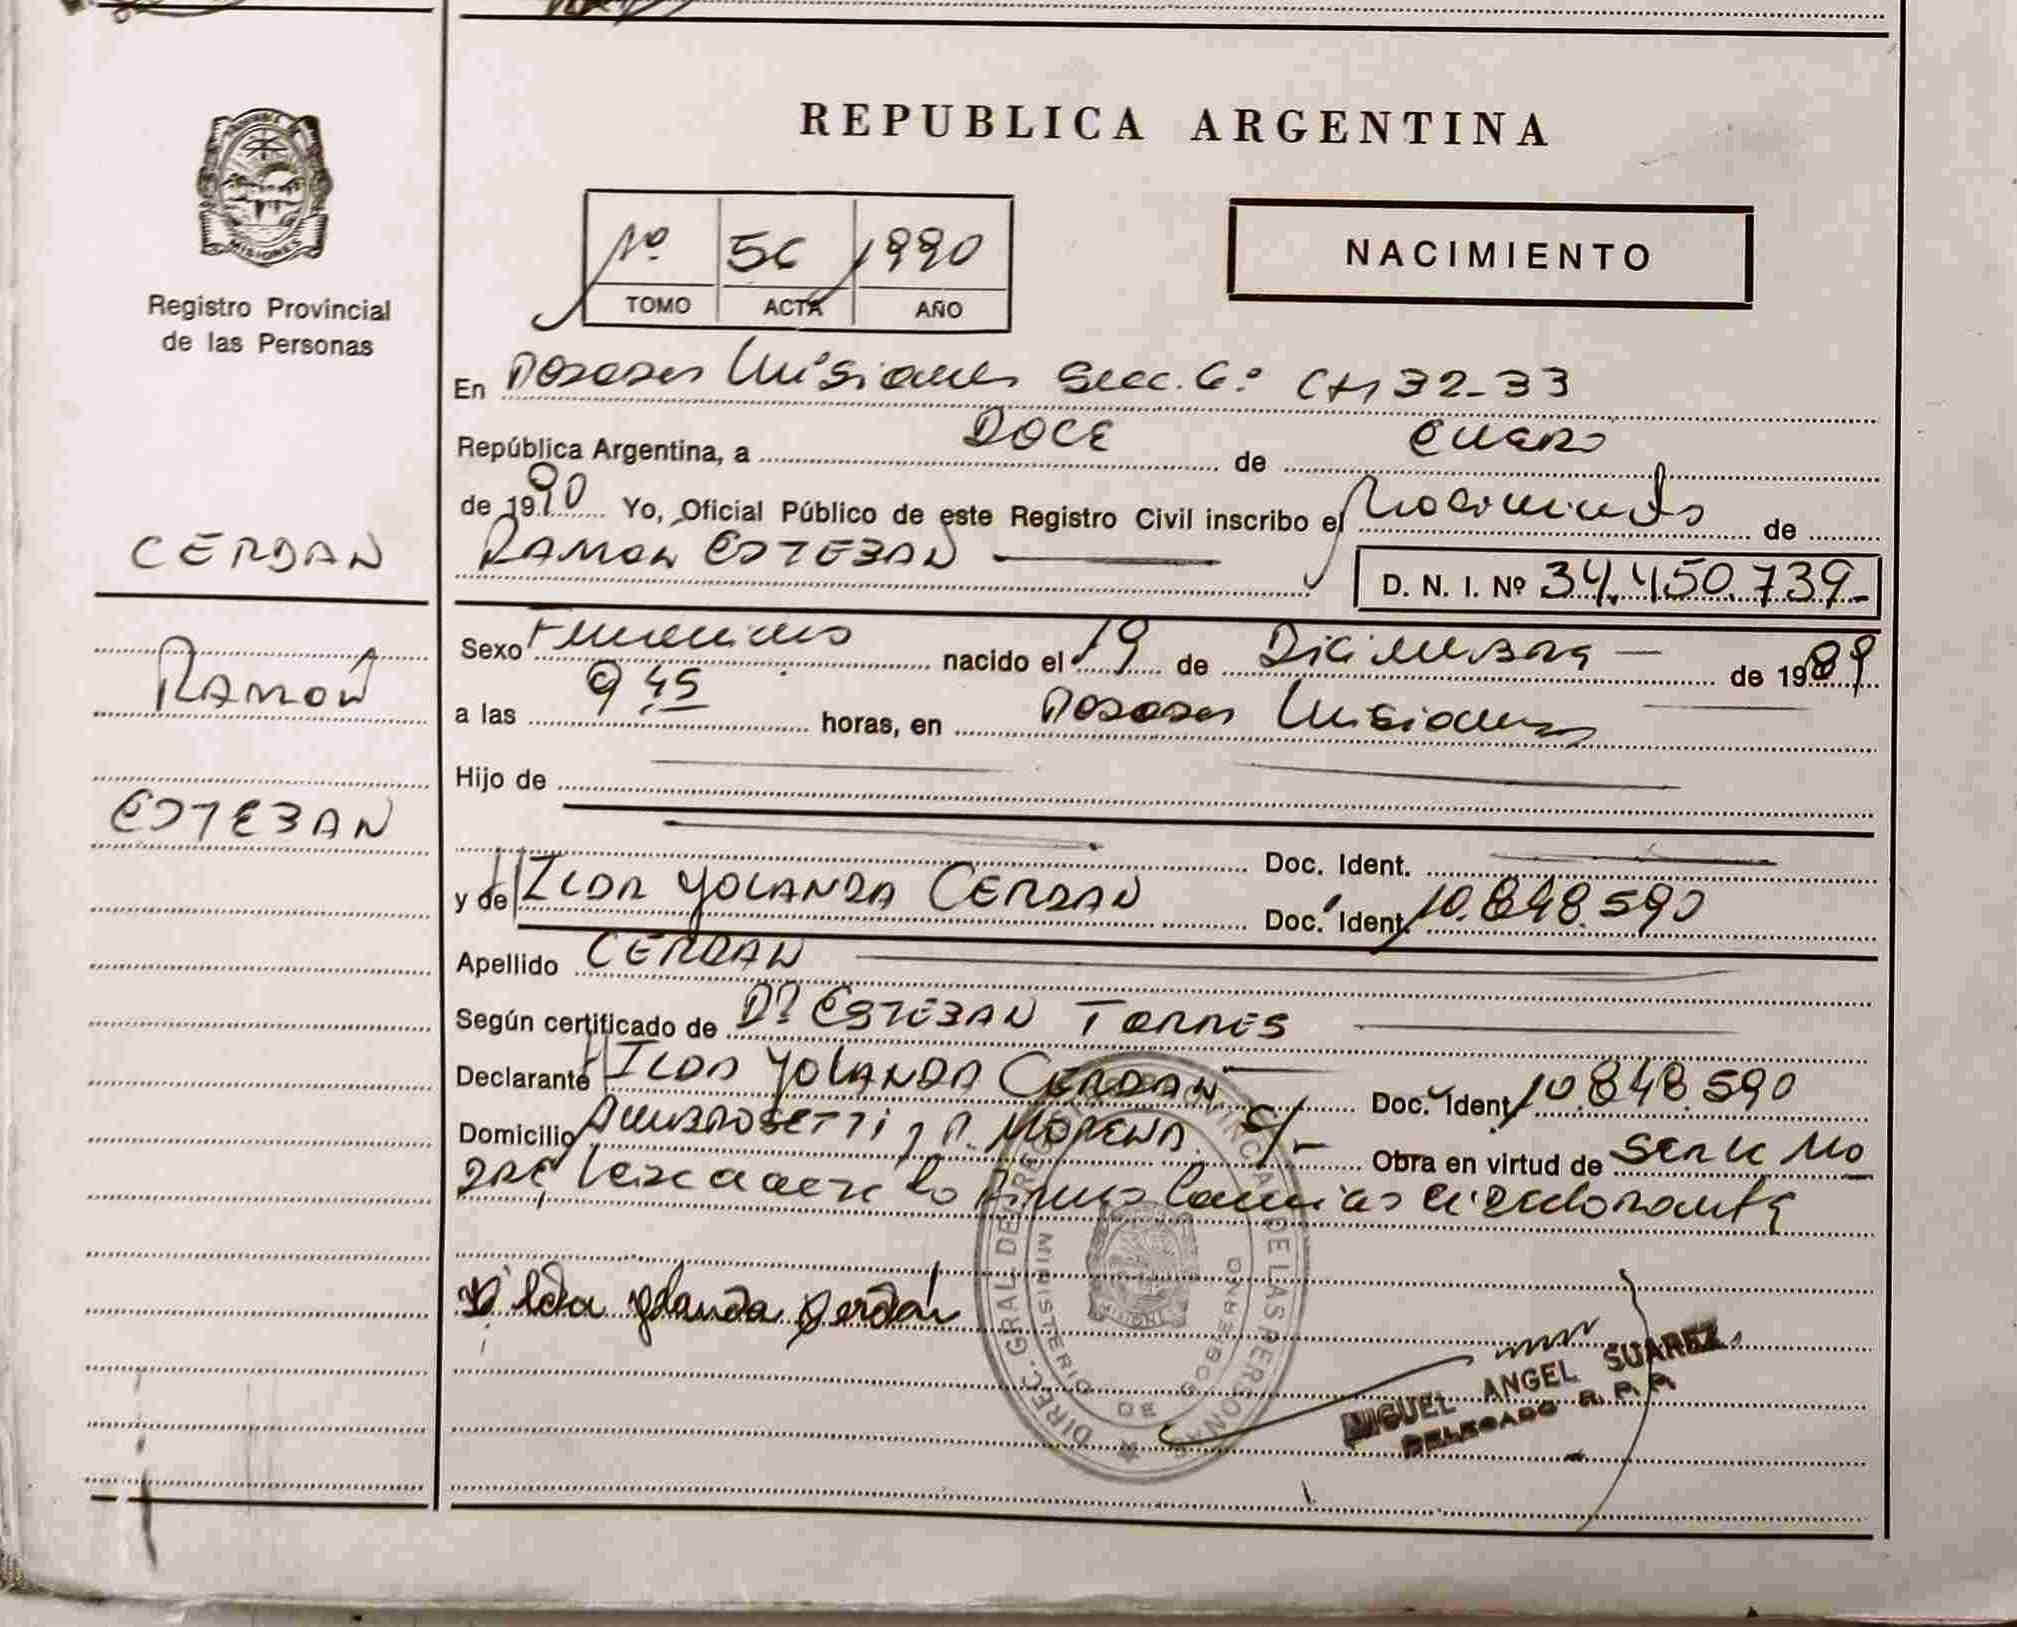 REPUBLICA ARGENTINA
MISIONES
Registro Provincial
de las Personas
Nº 56 1990
TOMO ACTA AÑO
NACIMIENTO
En Posadas Misiones Secc. 6º CH 32-33
República Argentina, a DOCE de ENERO
de 1990 Yo, Oficial Público de este Registro Civil inscribo el Nacimiento de
RAMON ESTEBAN
D. N. I. Nº 34.450.739-
CERDAN
RAMON
ESTEBAN
Sexo nacido el 19 de Diciembre de 1989
a las 9,45 horas, en Posadas Misiones
Hijo de
Doc. Ident.
y de ILDA YOLANDA CERDAN Doc. Ident. 10.848.590
Apellido CERDAN
Según certificado de Dº ESTEBAN TORRES
Declarante ILDA YOLANDA CERDAN Doc. Ident. 10.848.590
Domicilio AMBROSETTI y P. MORENO. S/- Obra en virtud de
firma
Ilda Yolanda Cerdán
DIREC. GRAL DEL REGISTRO PROVINCIAL DE LAS PERSONAS
MINISTERIO DE GOBIERNO
MIGUEL ANGEL SUAREZ
DELEGADO R. P. P.